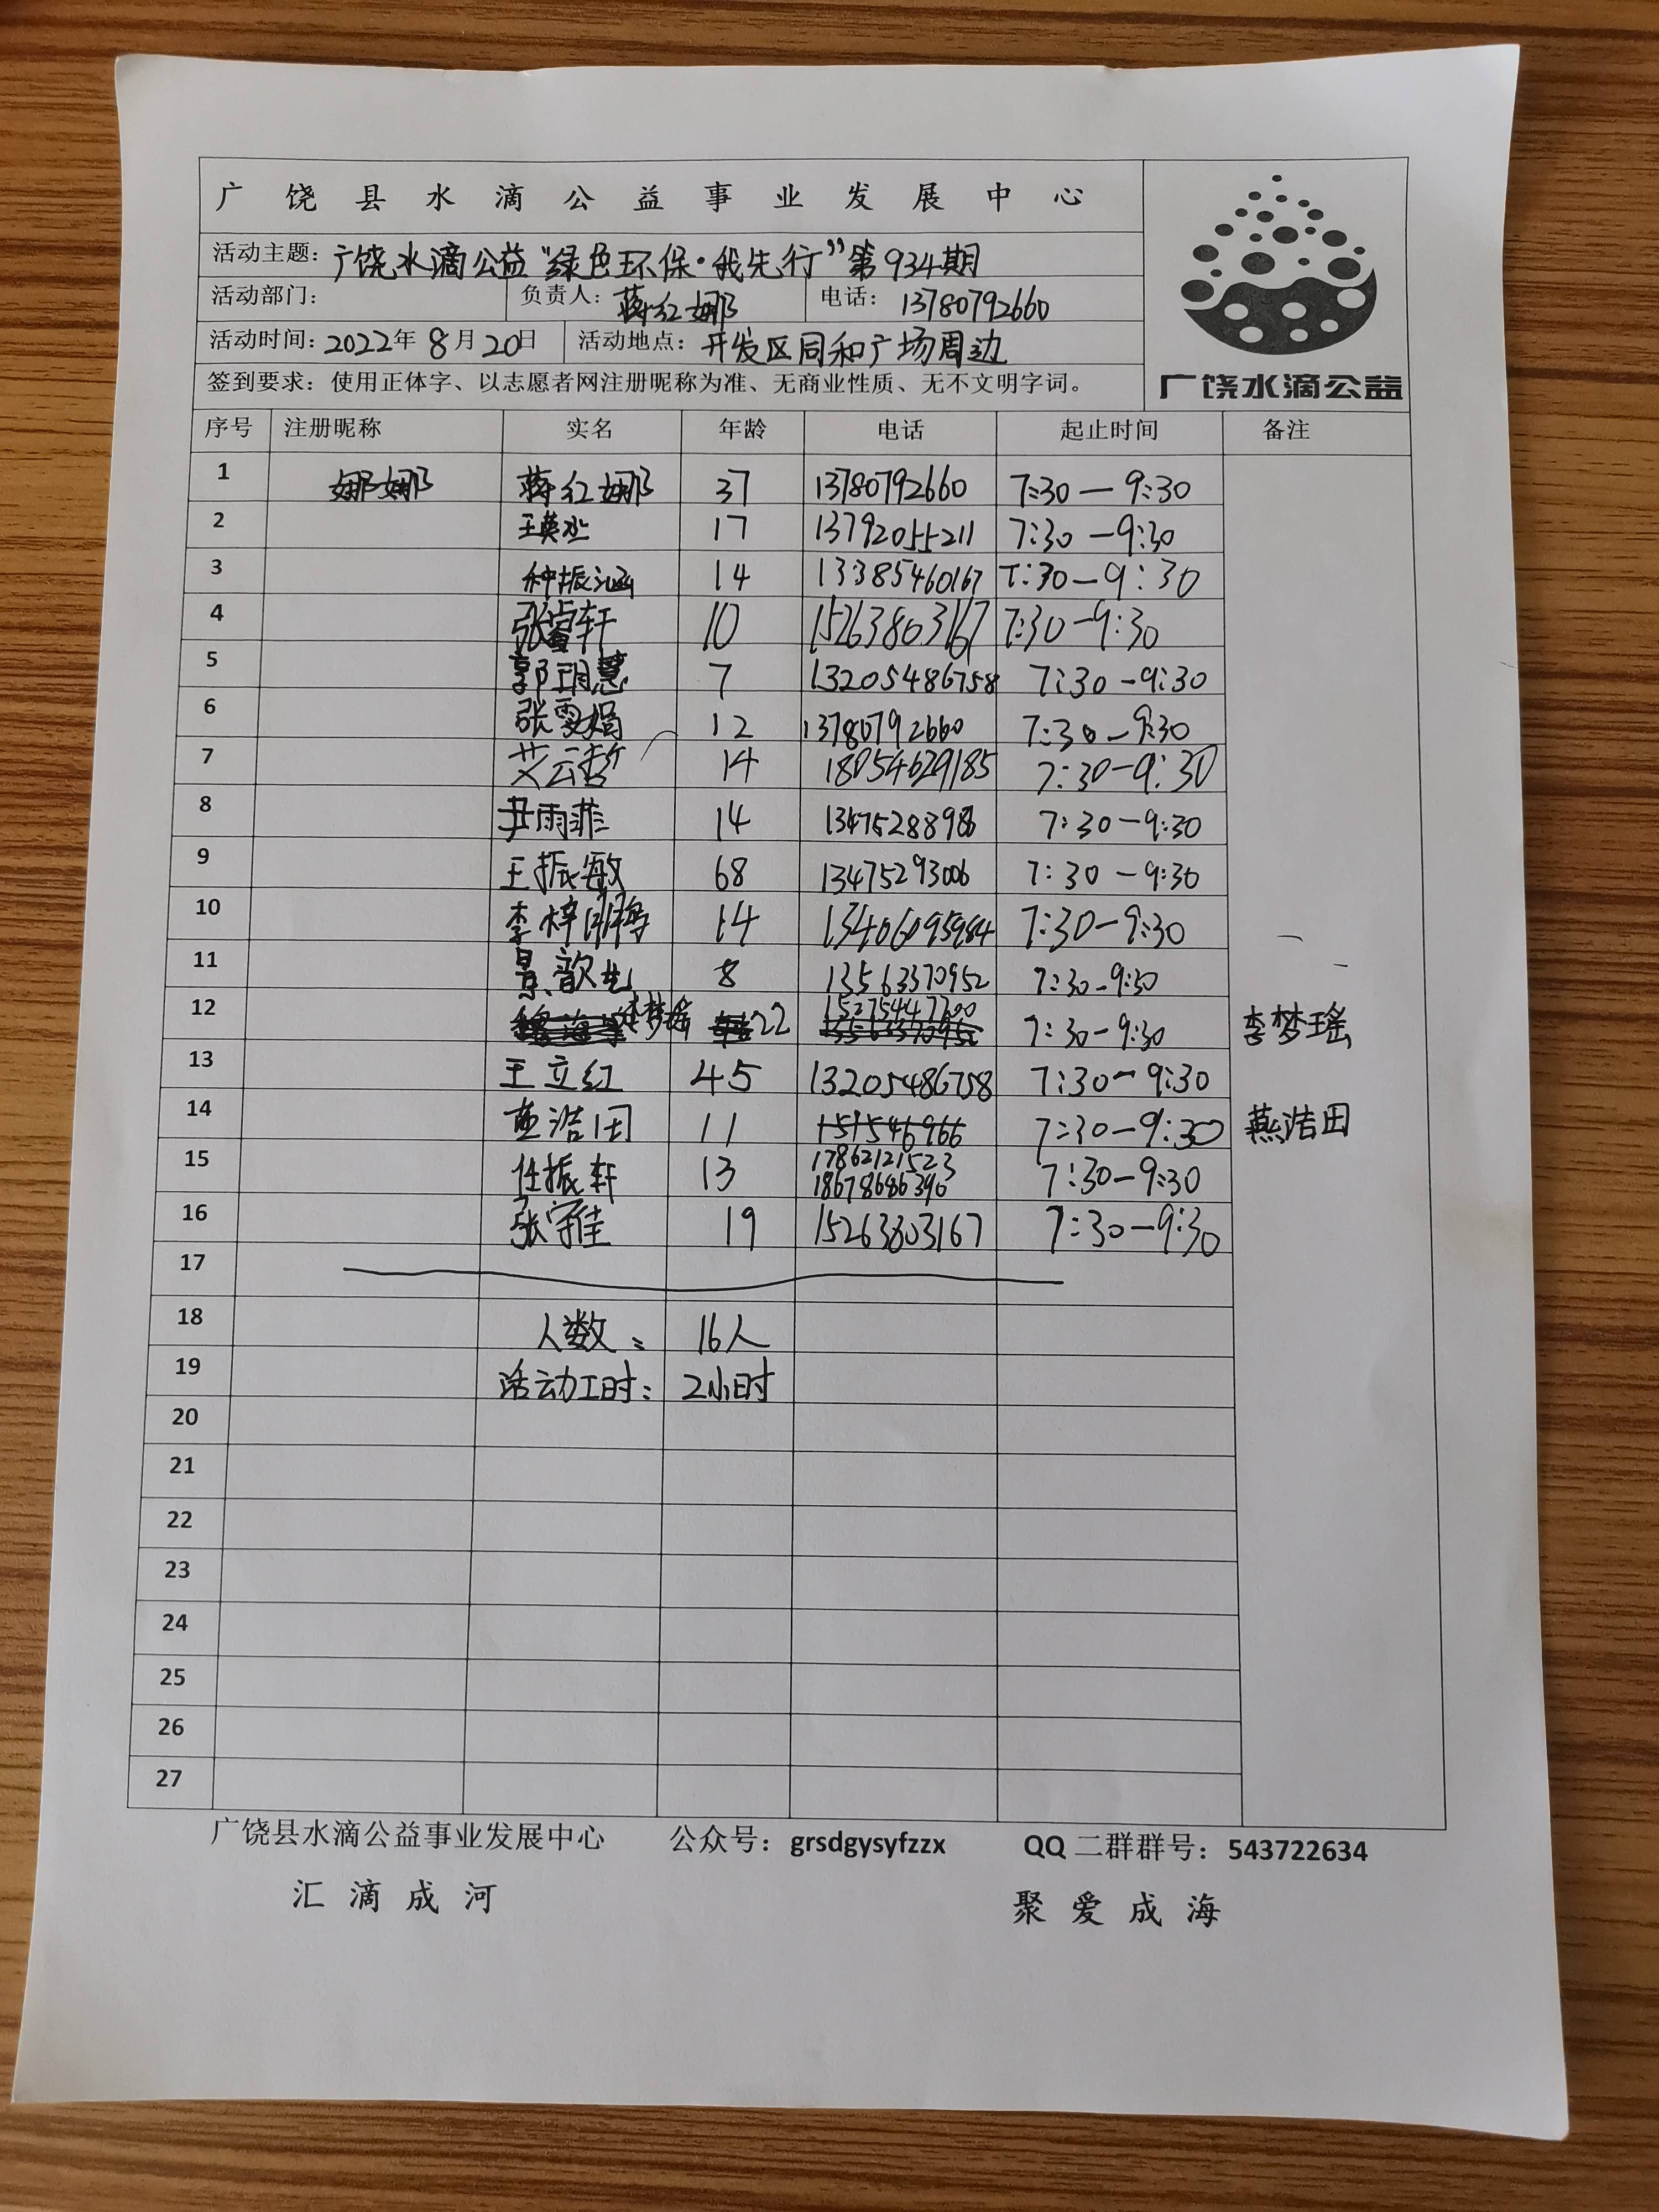 广饶县水滴公益事业发展中心
活动主题：广饶水滴公益“绿色环保·我先行”第934期
活动部门： 负责人：蒋红娜 电话：13780792660
活动时间：2022年8月20日 活动地点：开发区同和广场周边
签到要求：使用正体字、以志愿者网注册昵称为准、无商业性质、无不文明字词。
广饶水滴公益
序号 注册昵称 实名 年龄 电话 起止时间 备注
1 娜娜 蒋红娜 37 13780792660 7:30—9:30
2 17 13792055211 7:30—9:30
3 种振涵 14 13385460167 7:30—9:30
4 10 15263803167 7:30—9:30
5 郭玥慧 7 13205486758 7:30-9:30
6 张雯娟 12 13780792660 7:30-9:30
7 艾云哲 14 18054629185 7:30-9:30
8 尹雨菲 14 7:30-9:30
9 王振敏 68 13475293006 7:30-9:30
10 李梓 14 13406095984 7:30-9:30
11 景歆 8 13563370952 7:30-9:30
12 李梦瑶 22 15275447700 7:30-9:30 李梦瑶
13 王立红 45 13205486758 7:30-9:30
14 燕浩田 11 151546966 7:30-9:30 燕浩田
17862121523
15 任振轩 13 18678686390 7:30-9:30
16 张守佳 19 15263803167 7:30-9:30
17
18 人数： 16人
19 活动工时： 2小时
20
21
22
23
24
25
26
27
广饶县水滴公益事业发展中心 公众号：grsdgysyfzzx QQ二群群号：543722634
汇滴成河 聚爱成海